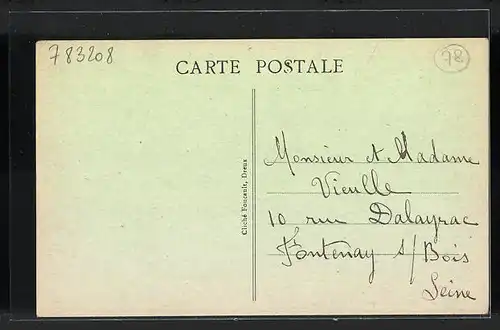 783208
78
CARTE POSTALE
Cliché Foucault, Dreux
Monsieur et Madame
Vieulle
10 rue Dalayrac
Fontenay s/Bois
Seine